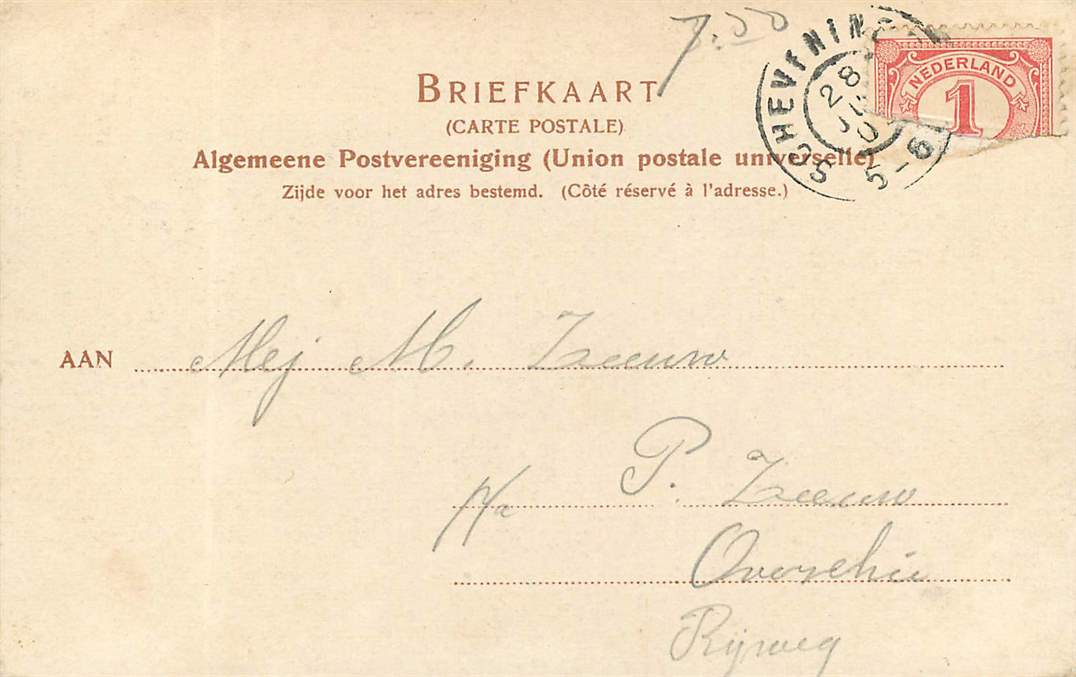 7.00
BRIEFKAART
(CARTE POSTALE)
Algemeene Postvereeniging (Union postale universelle)
Zijde voor het adres bestemd. (Côté réservé à l'adresse.)
NEDERLAND
1
SCHEVENIN
28
5-6
AAN Mej M. Zeeuw
P. Zeeuw
p/a
Overschie
Rijweg